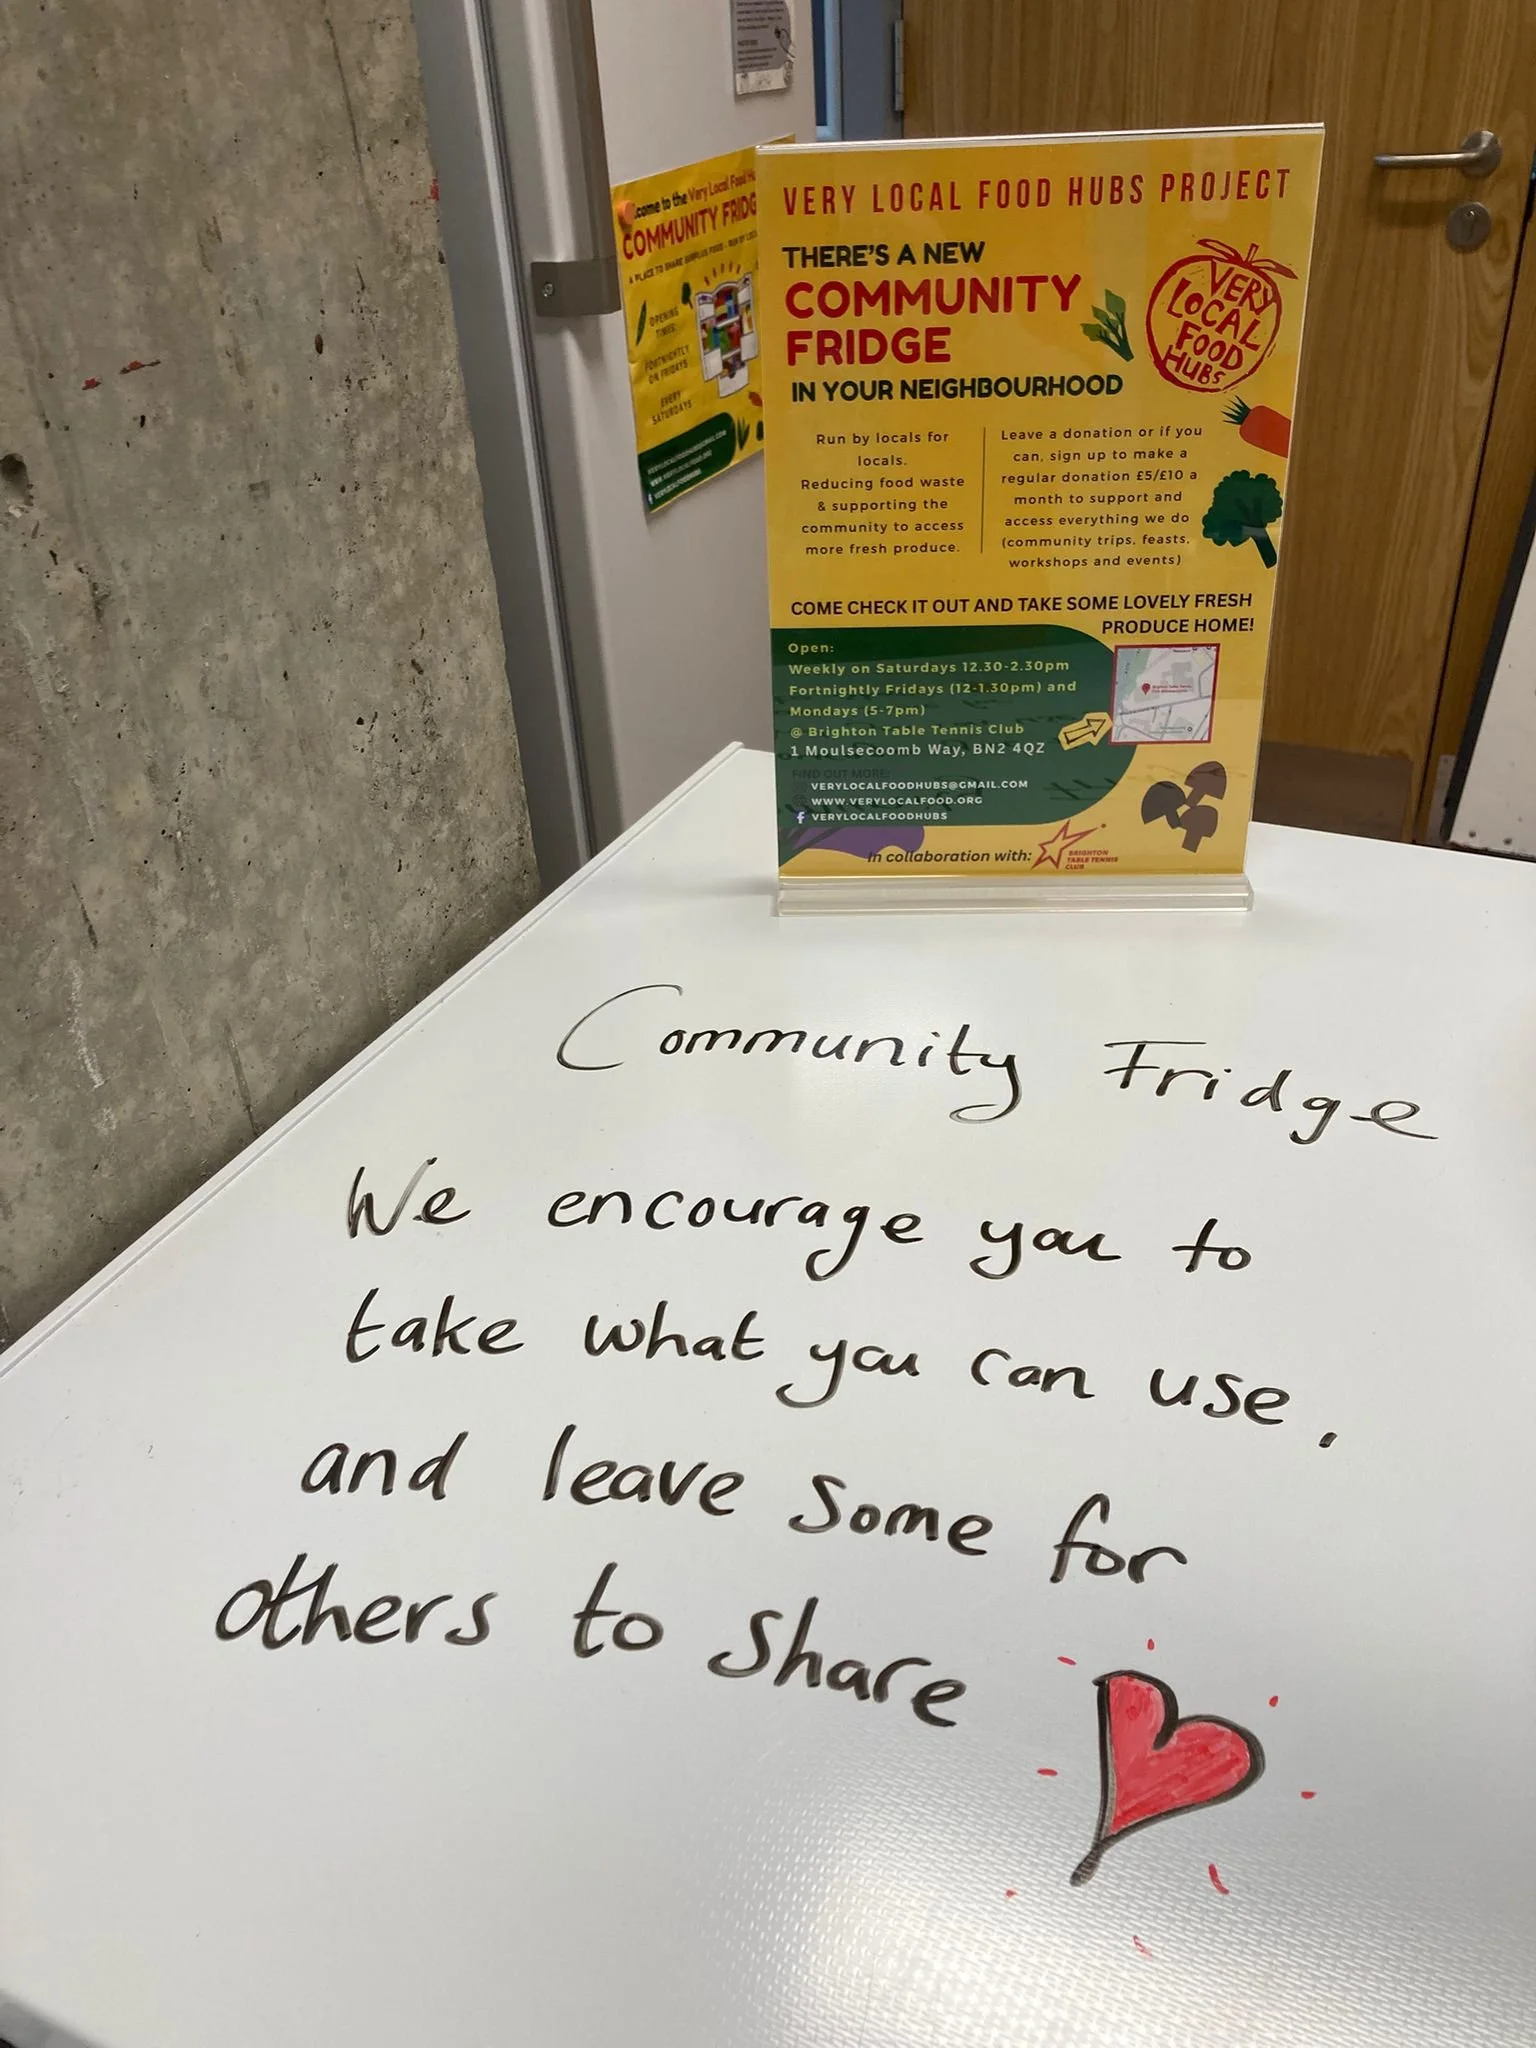 VERY LOCAL FOOD HUBS PROJECT
THERE'S A NEW
COMMUNITY
FRIDGE
IN YOUR NEIGHBOURHOOD
VERY
LOCAL
FOOD
HUBS
Run by locals for
locals.
Reducing food waste
& supporting the
community to access
more fresh produce.
Leave a donation or if you
can, sign up to make a
regular donation £5/£10 a
month to support and
access everything we do
(community trips, feasts,
workshops and events)
COME CHECK IT OUT AND TAKE SOME LOVELY FRESH
PRODUCE HOME!
Open:
Weekly on Saturdays 12.30-2.30pm
Fortnightly Fridays (12-1.30pm) and
Mondays (5-7pm)
@ Brighton Table Tennis Club
1 Moulsecoomb Way, BN2 4QZ
FIND OUT MORE:
VERYLOCALFOODHUBS@GMAIL.COM
WWW.VERYLOCALFOOD.ORG
f VERYLOCALFOODHUBS
In collaboration with:
BRIGHTON
TABLE TENNIS
CLUB
lcome to the Very Local Food Hu
COMMUNITY FRIDG
A PLACE TO SHARE SURPLUS FOOD - RUN BY LOC
OPENING
TIMES:
FORTNIGHTLY
ON FRIDAYS
EVERY
SATURDAYS
VERYLOCALFOODHUBS@GMAIL.COM
WWW.VERYLOCALFOOD.ORG
f VERYLOCALFOODHUBS
Community Fridge
We encourage you to
take what you can use.
and leave some for
others to share